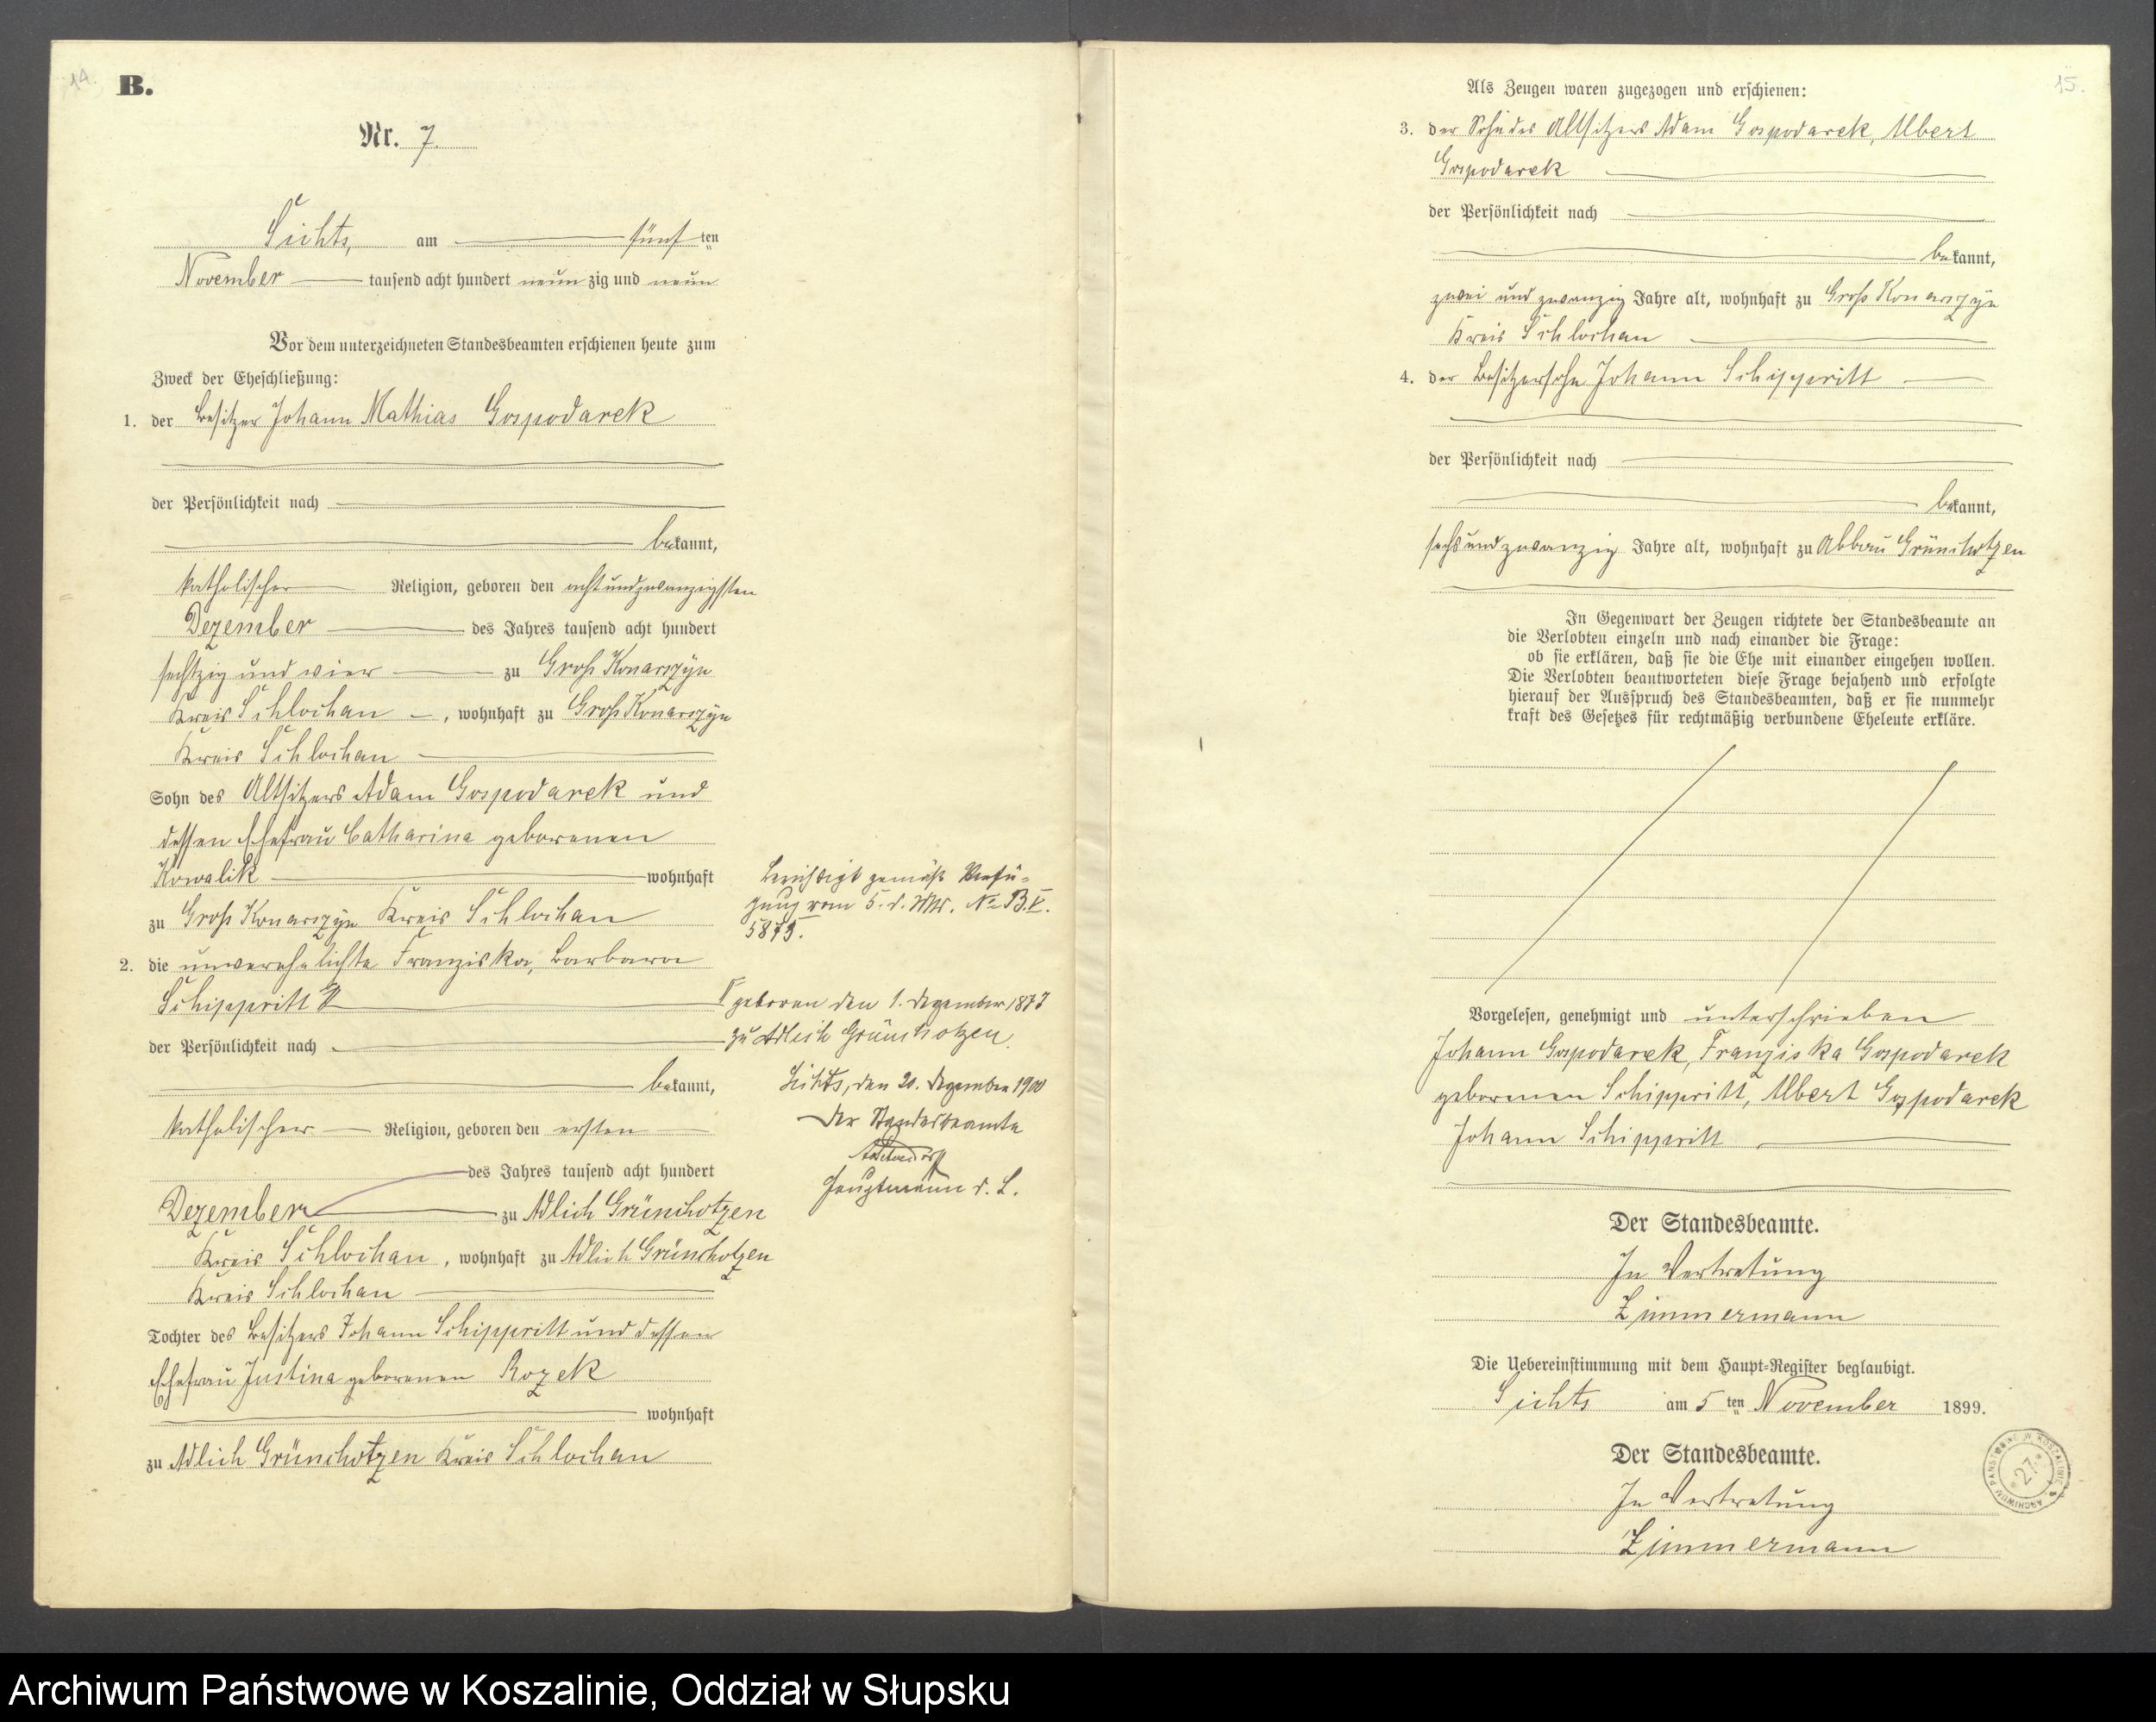 14.
B.
Nr. 7.
Sichts, am fünf ten
November tausend acht hundert neun zig und neun
Vor dem unterzeichneten Standesbeamten erschienen heute zum
Zweck der Eheschließung:
1. der Besitzer Johann Mathias Gospodarek
der Persönlichkeit nach
bekannt,
katholischer Religion, geboren den achtundzwanzigsten
Dezember des Jahres tausend acht hundert
sechszig und vier zu Groß Konarszyn
Kreis Schlochau, wohnhaft zu Groß Konarszyn
Kreis Schlochau
Sohn des Altsitzers Adam Gospodarek und
dessen Ehefrau Catharina geborenen
Kowalik wohnhaft
zu Groß Konarszyn Kreis Schlochau
2. die unverehelichte Franziska, Barbara
Schippritt
der Persönlichkeit nach
bekannt,
katholischer Religion, geboren den ersten
des Jahres tausend acht hundert
Dezember zu Adlich Grünchotzen
Kreis Schlochau, wohnhaft zu Adlich Grünchotzen
Kreis Schlochau
Tochter des Besitzers Johann Schippritt und dessen
Ehefrau Justina geborenen Rozek
wohnhaft
zu Adlich Grünchotzen Kreis Schlochau
Berichtigt gemäß Verfü-
gung vom 5. d. Mts. No B.V.
5875.
geboren den 1. Dezember 1877
zu Adlich Grünchotzen.
Sichts, den 20. Dezember 1900
Der Standesbeamte
Hauptmann d. L.
15.
Als Zeugen waren zugezogen und erschienen:
3. der Sohn des Altsitzers Adam Gospodarek, Albert
Gospodarek
der Persönlichkeit nach
bekannt,
zwei und zwanzig Jahre alt, wohnhaft zu Groß Konarszyn
Kreis Schlochau
4. der Besitzersohn Johann Schippritt
der Persönlichkeit nach
bekannt,
sechsundzwanzig Jahre alt, wohnhaft zu Abbau Grünchotzen
In Gegenwart der Zeugen richtete der Standesbeamte an
die Verlobten einzeln und nach einander die Frage:
ob sie erklären, daß sie die Ehe mit einander eingehen wollen.
Die Verlobten beantworteten diese Frage bejahend und erfolgte
hierauf der Ausspruch des Standesbeamten, daß er sie nunmehr
kraft des Gesetzes für rechtmäßig verbundene Eheleute erkläre.
Vorgelesen, genehmigt und unterschrieben
Johann Gospodarek, Franziska Gospodarek
geborenen Schippritt, Albert Gospodarek
Johann Schippritt
Der Standesbeamte.
In Vertretung
Zimmermann
Die Uebereinstimmung mit dem Haupt-Register beglaubigt.
Sichts am 5 ten November 1899.
Der Standesbeamte.
In Vertretung
Zimmermann
ARCHIWUM PAŃSTWOWE W KOSZALINIE
27
Archiwum Państwowe w Koszalinie, Oddział w Słupsku